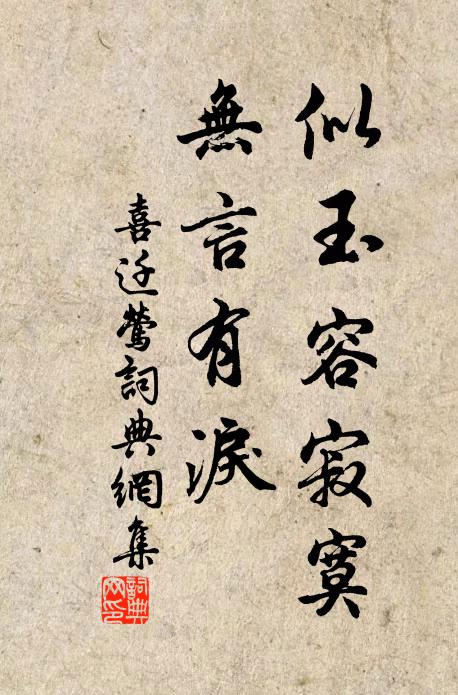 似玉容寂寞
無言有淚
喜迁鶯詞典網集
詞典网印